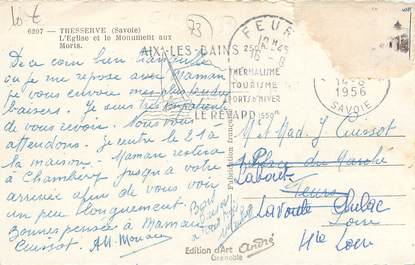 10 €
73
6207 - TRESSERVE (Savoie)
L'Eglise et le Monument aux
Morts.
De ce coin bien tranquille
ou je me repose avec Maman
je vous envoie mes plus tendres
baisers. Je suis très impatiente
de vous revoir. Nous vous
attendons. Je rentre le 21 à
la maison. Maman restera
à Chambéry jusqu'à votre
arrivée afin de vous voir
un peu longuement.
Bonnes pensées à Maman
Cuissot.
Bons
baisers
à vous
AIX-LES-BAINS
THERMALISME
TOURISME
SPORTS D'HIVER
LE REVARD 1550m
FEUR
16-8
1956
SAVOIE
Fabrication française
M et Mad. J. Cuissot
Place du Marché
Feurs
Lavoute Chilac
Loire
Hte Loire
Edition d'Art André
Grenoble